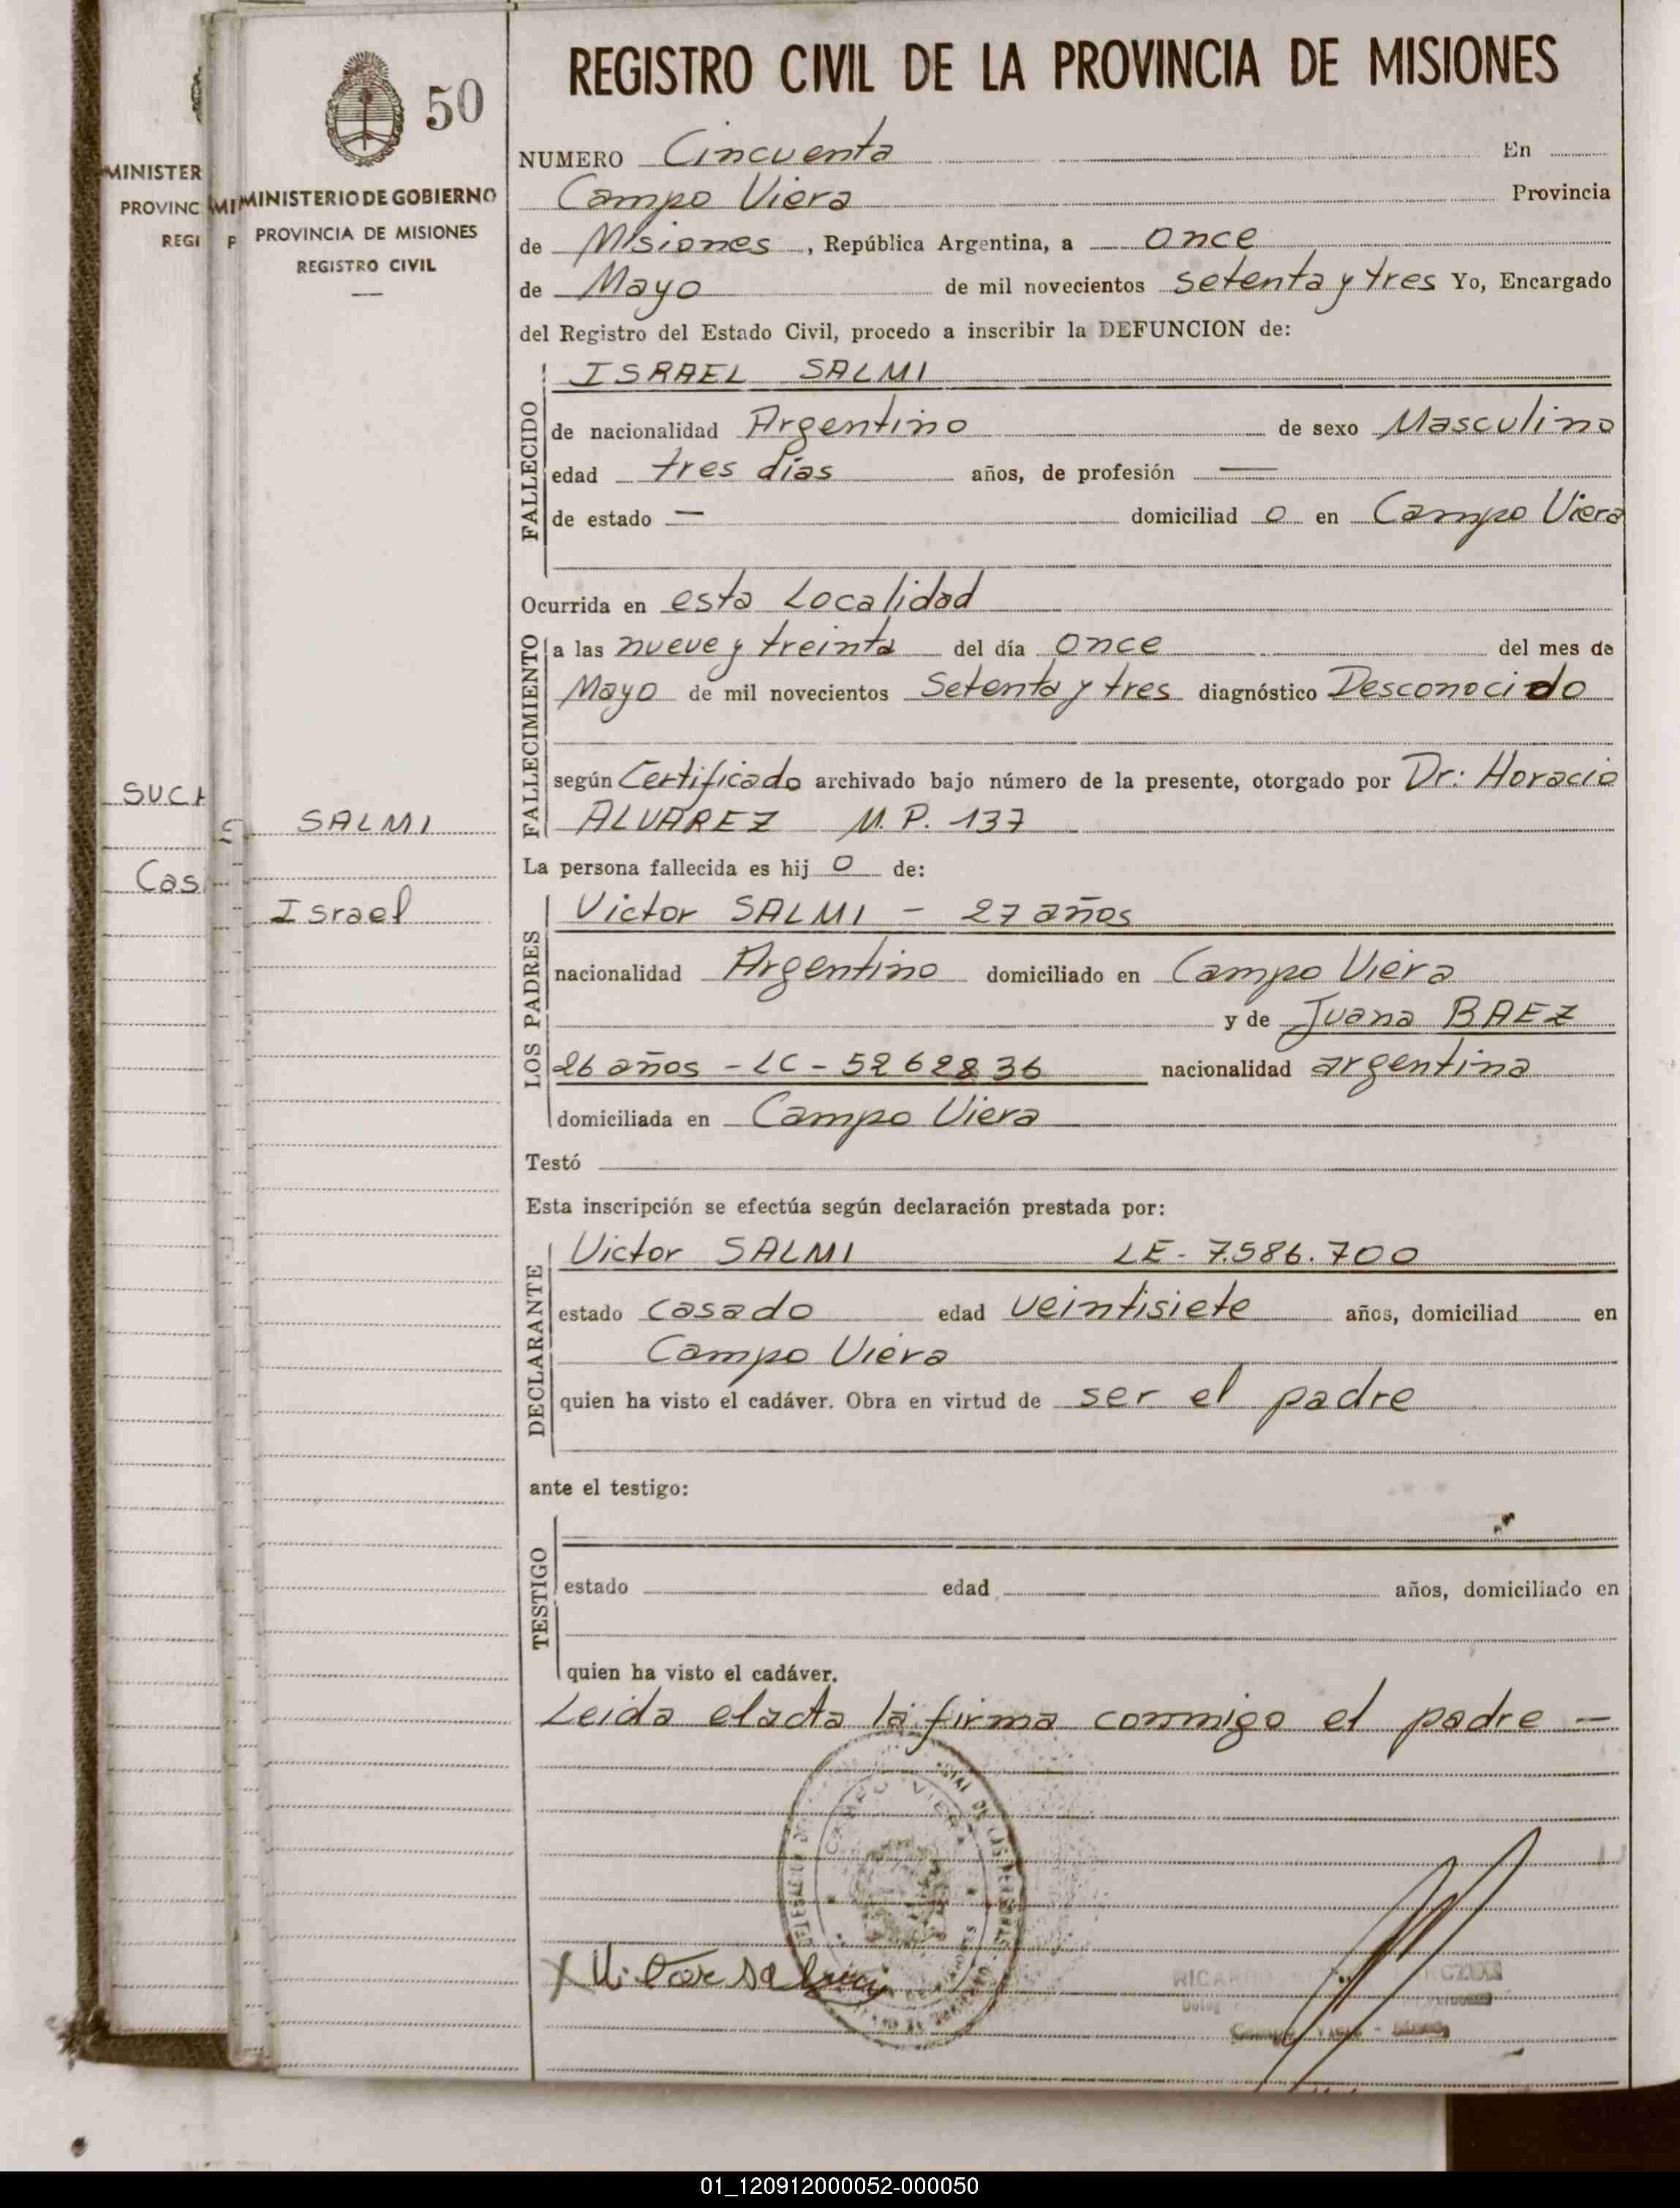 MINISTER
PROVINC
REGI
SUCH
Cas
MI
P
50
MINISTERIO DE GOBIERNO
PROVINCIA DE MISIONES
REGISTRO CIVIL
SALMI
Israel
REGISTRO CIVIL DE LA PROVINCIA DE MISIONES
NUMERO Cincuenta En
Campo Viera Provincia
de Misiones, República Argentina, a once
de Mayo de mil novecientos setenta y tres Yo, Encargado
del Registro del Estado Civil, procedo a inscribir la DEFUNCION de:
FALLECIDO
ISRAEL SALMI
de nacionalidad Argentino de sexo Masculino
edad tres días años, de profesión —
de estado — domiciliad o en Campo Viera
Ocurrida en esta Localidad
FALLECIMIENTO
a las nueve y treinta del día once del mes de
Mayo de mil novecientos Setenta y tres diagnóstico Desconocido
según Certificado archivado bajo número de la presente, otorgado por Dr: Horacio
ALVAREZ M.P. 137
La persona fallecida es hij o de:
LOS PADRES
Victor SALMI - 27 años
nacionalidad Argentino domiciliado en Campo Viera
y de Juana BAEZ
26 años - LC - 5262836 nacionalidad argentina
domiciliada en Campo Viera
Testó
Esta inscripción se efectúa según declaración prestada por:
DECLARANTE
Victor SALMI LE- 7.586.700
estado casado edad veintisiete años, domiciliad en
Campo Viera
quien ha visto el cadáver. Obra en virtud de ser el padre
ante el testigo:
TESTIGO
estado edad años, domiciliado en
quien ha visto el cadáver.
Leida el acta la firma conmigo el padre —
CAMPO VIERA
RICARDO
Campo Viera - Mnes.
01_120912000052-000050